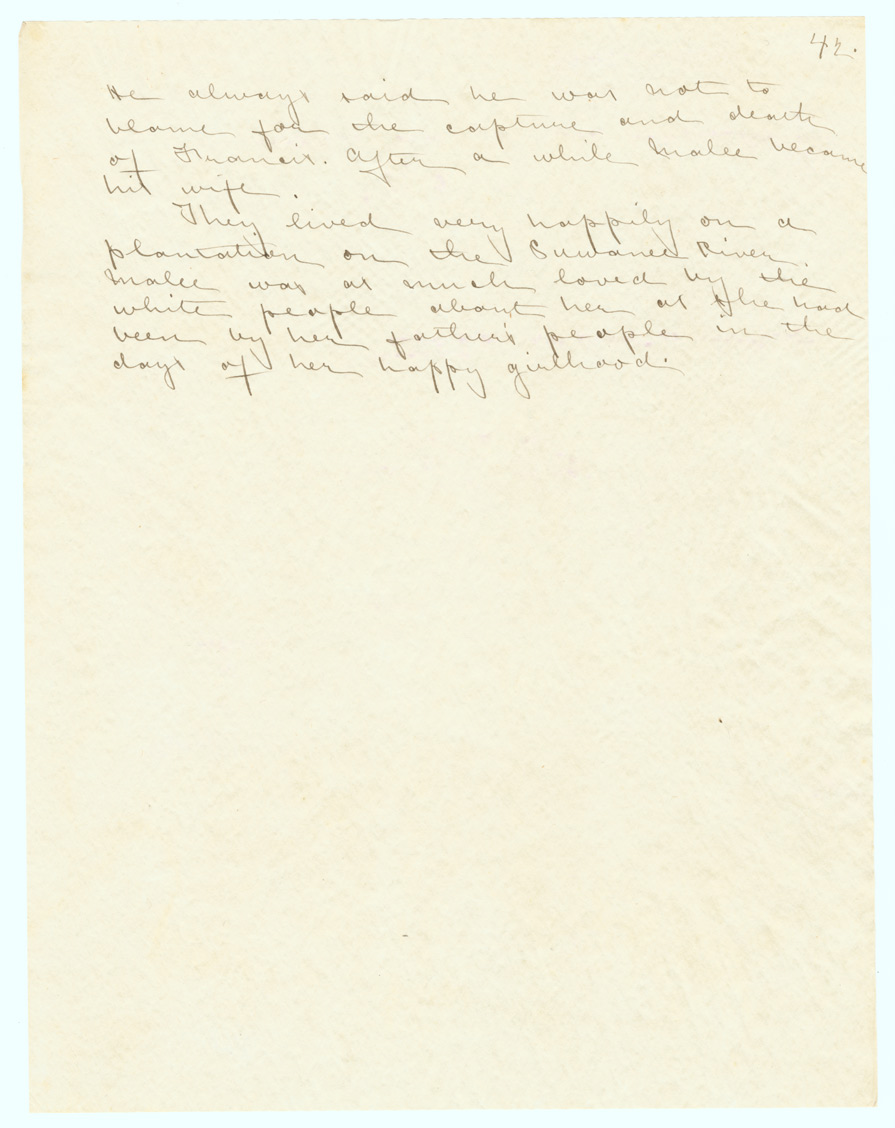 42.
He always said he was not to
blame for the capture and death
of Francis. After a while Malee became
his wife.
They lived very happily on a
plantation on the Suwanee River.
Malee was as much loved by the
white people about her as she had
been by her father's people in the
days of her happy girlhood.